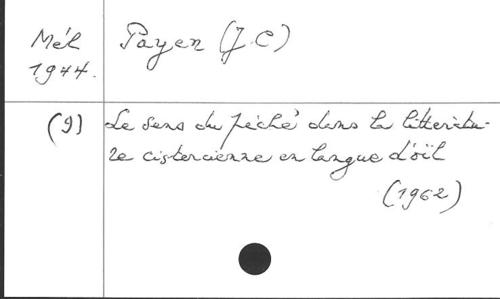 Mél Payen (J.C)
1944.
(9) Le sens du péché dans la littératu-
re cistercienne en langue d'oïl
(1962)